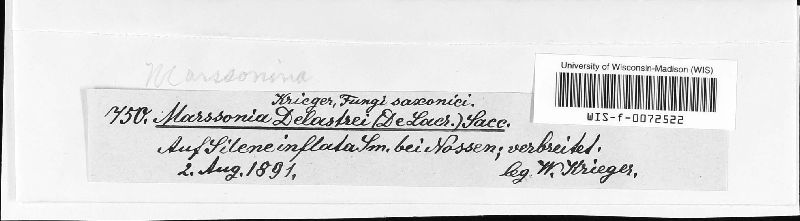 Marssonina
University of Wisconsin-Madison (WIS)
WIS-f-0072522
Krieger, Fungi saxonici.
750. Marssonia Delastrei (De Lacr.) Sacc.
Auf Silene inflata Sm. bei Nossen; verbreitet.
2. Aug. 1891. leg. W. Krieger.